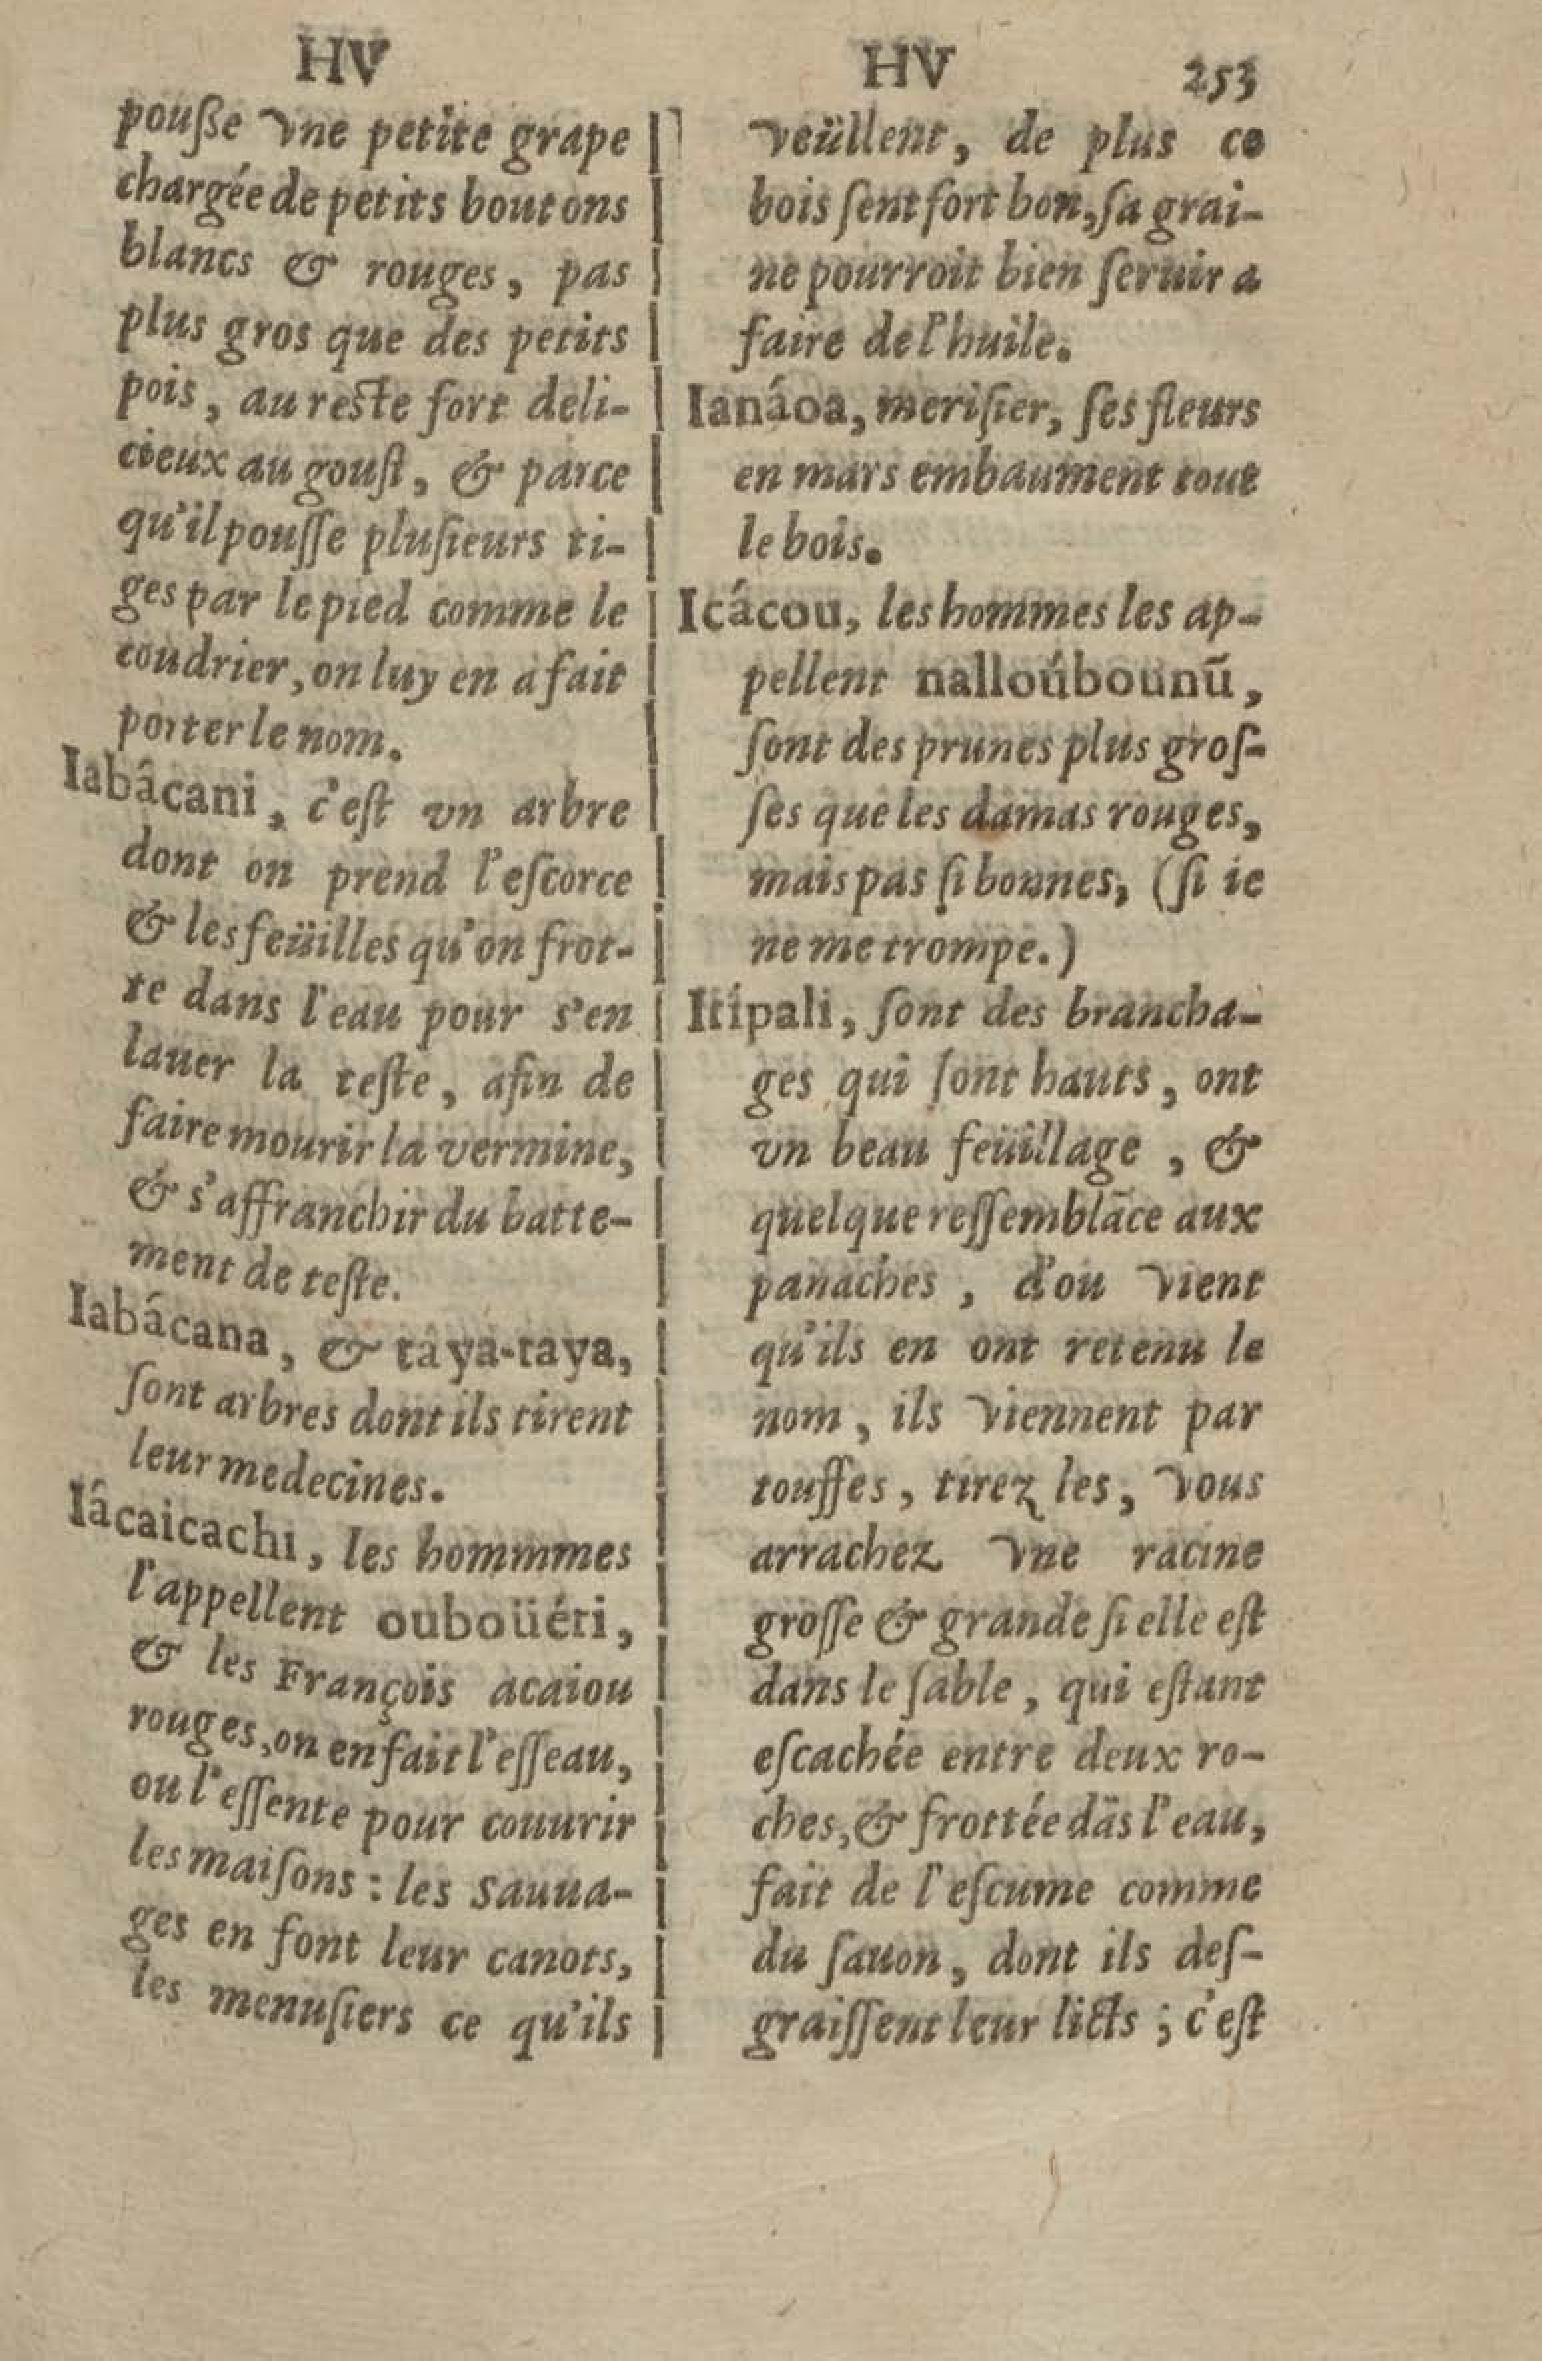 HV
pouße vne petite grape
chargée de petits boutons
blancs & rouges, pas
plus gros que des petits
pois, au reſte fort deli-
cieux au gouſt, & parce
qu'il pouſſe pluſieurs ti-
ges par le pied comme le
coudrier, on luy en a fait
porter le nom.
Iabâcani, c'eſt vn arbre
dont on prend l'eſcorce
& les feüilles qu'on frot-
te dans l'eau pour s'en
lauer la teſte, afin de
faire mourir la vermine,
& s'affranchir du batte-
ment de teſte.
Iabácana, & tàya-taya,
ſont arbres dont ils tirent
leur medecines.
Iâcaicachi, les hommmes
l'appellent ouboüéri,
& les François acaiou
rouges, on en fait l'eſſeau,
ou l'eſſente pour couurir
les maiſons : les Sauua-
ges en font leur canots,
les menuſiers ce qu'ils
HV 253
veüllent, de plus ce
bois ſent fort bon, ſa grai-
ne pourroit bien ſeruir a
faire de l'huile.
Ianáoa, meriſier, ſes fleurs
en mars embaument tout
le bois.
Icácou, les hommes les ap-
pellent nalloúbounū,
ſont des prunes plus groſ-
ſes que les damas rouges,
mais pas ſi bonnes, (ſi ie
ne me trompe.)
Itípali, ſont des brancha-
ges qui ſont hauts, ont
vn beau feüillage, &
quelque reſſemblāce aux
panaches, d'ou vient
qu'ils en ont retenu le
nom, ils viennent par
touffes, tirez les, vous
arrachez vne racine
groſſe & grande ſi elle eſt
dans le ſable, qui eſtant
eſcachée entre deux ro-
ches, & frottée dās l'eau,
fait de l'eſcume comme
du ſauon, dont ils deſ-
graiſſent leur licts ; c'eſt